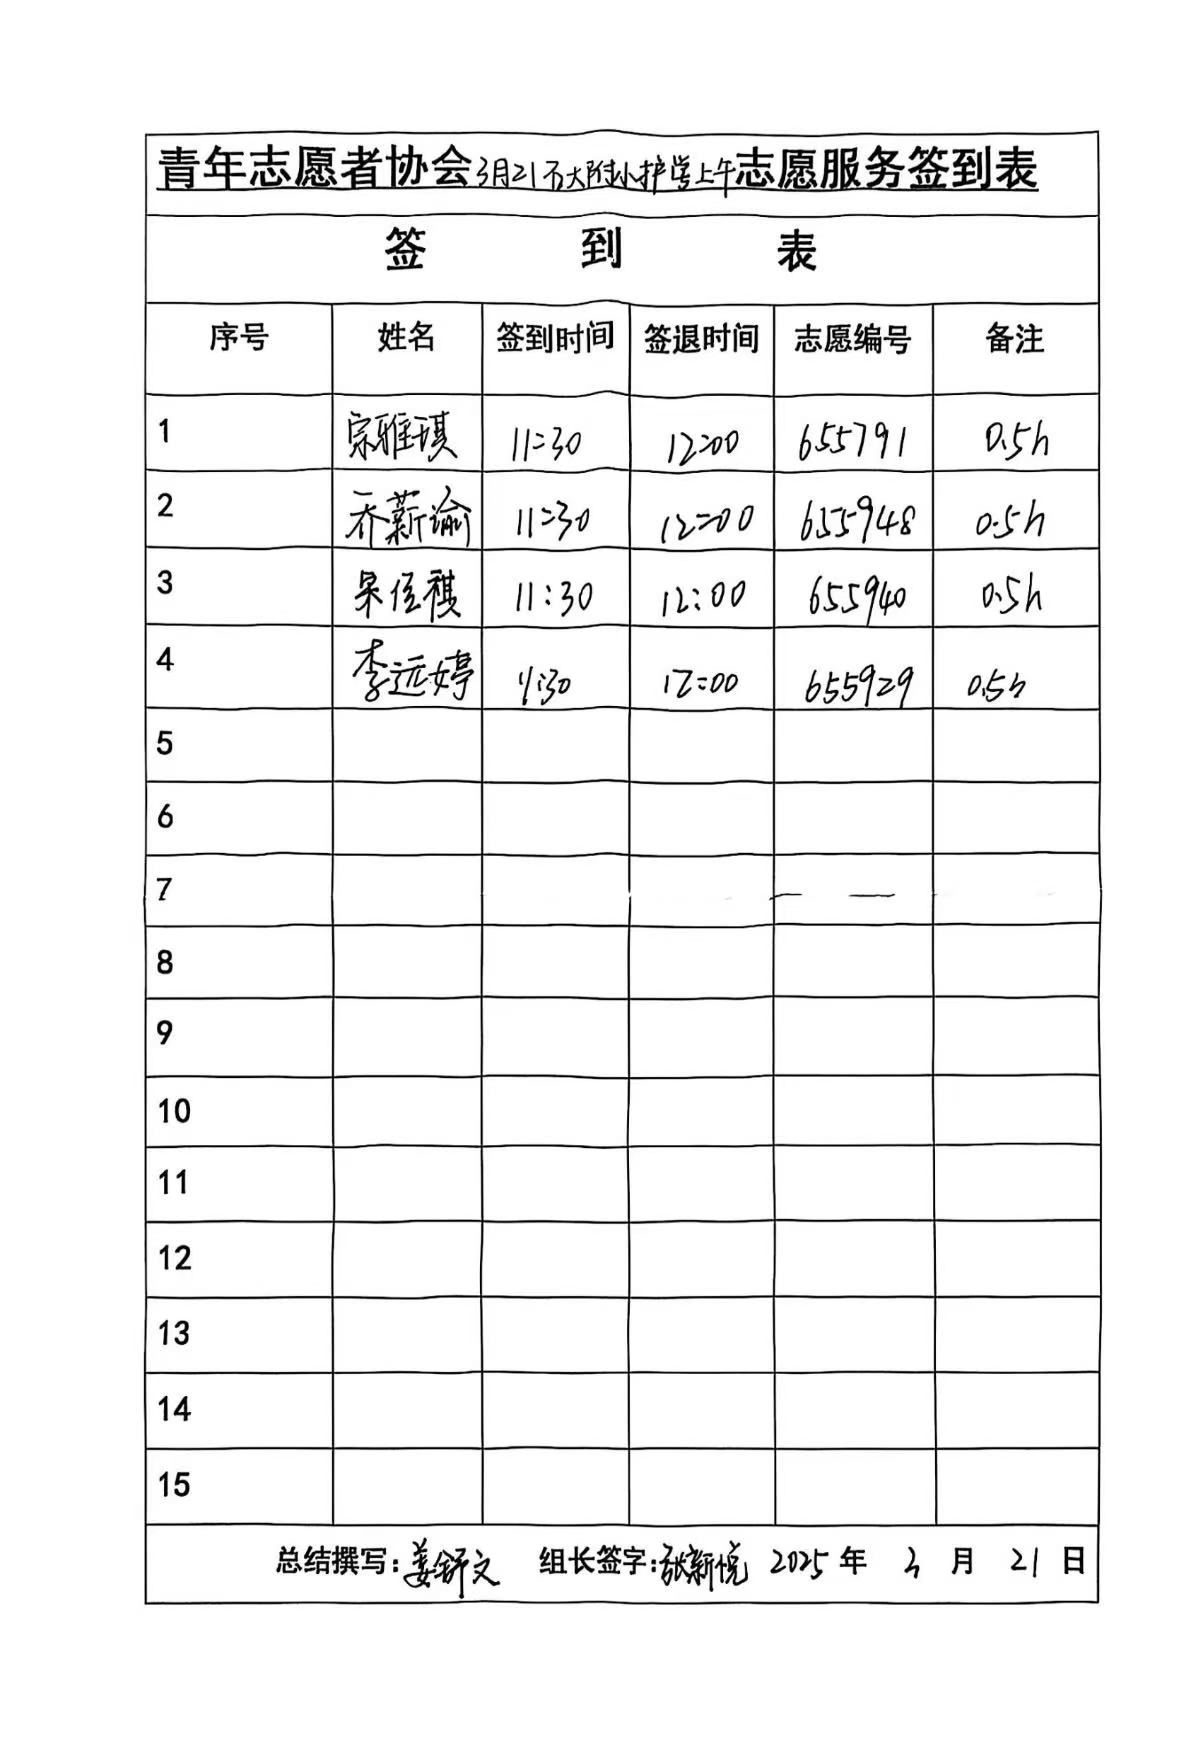 青年志愿者协会3月21石大附小护学上午志愿服务签到表
签 到 表
序号 姓名 签到时间 签退时间 志愿编号 备注
1 宗雅琪 11:30 12:00 655791 0.5h
2 乔薪谕 11:30 12:00 655948 0.5h
3 佳祺 11:30 12:00 655940 0.5h
4 李远婷 11:30 12:00 655929 0.5h
5
6
7
8
9
10
11
12
13
14
15
总结撰写:姜舒文 组长签字:张新悦 2025 年 3 月 21 日